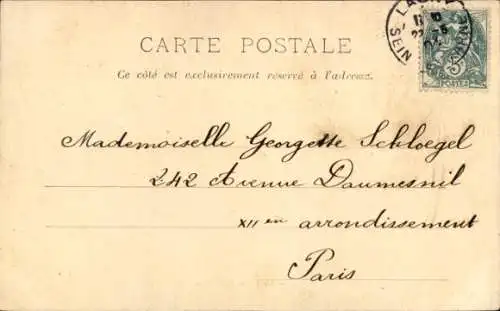 CARTE POSTALE
Ce côté est exclusivement réservé à l'adresse.
Mademoiselle Georgette Schloegel
242 Avenue Daumesnil
XII em arrondissement
Paris
SEINE
5
POSTES